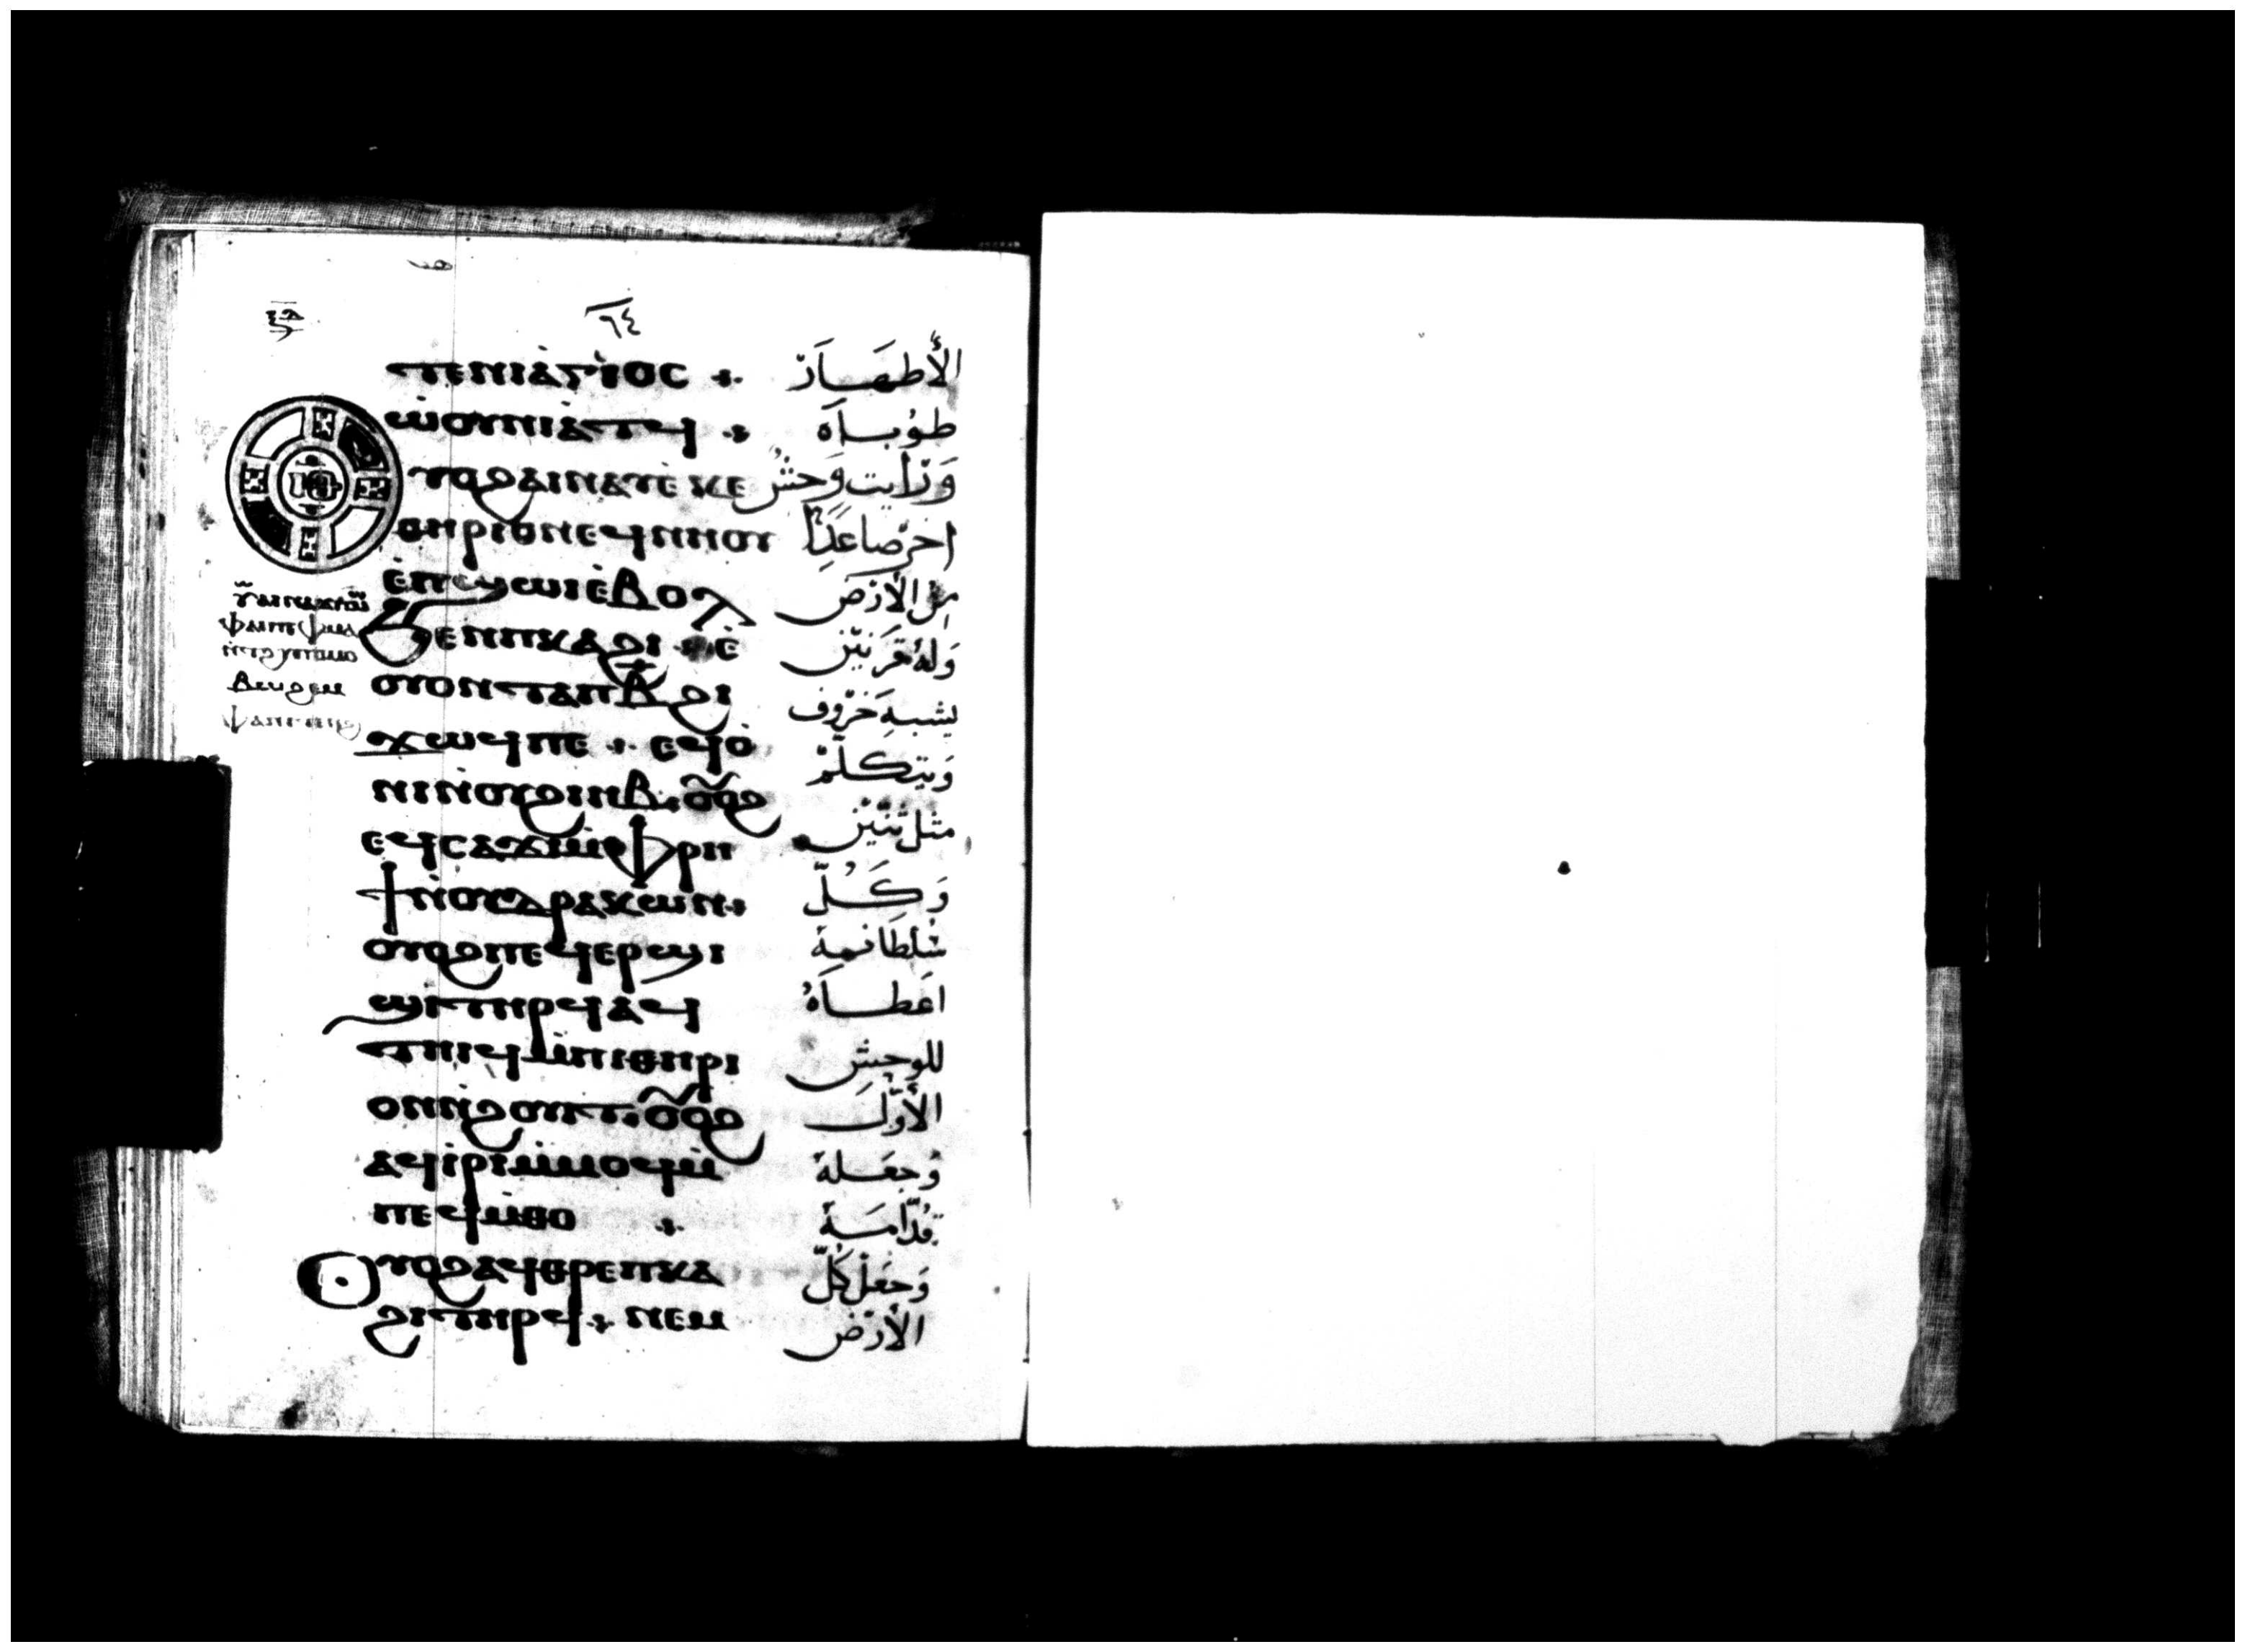 ٩٤
ⲧⲉⲛⲓⲁ̀ⲅⲓⲟⲥ الأَطهَار
ⲱ̀ⲟⲩⲛⲓⲁ̀ⲧϥ طوُباَه
ⲟⲩⲟϩⲁⲓⲛⲁⲩⲉ̀ⲕⲉ وَرَايت وَحش
ⲑⲏⲣⲓⲟⲛⲉϥⲛⲏⲟⲩ اخر صَاعدًا
ⲉ̀ⲡϣⲱⲓⲉ̀ⲃⲟⲗ من الأرض
ϧⲉⲛⲡⲕⲁϩⲓ ⲉ̀ وَلهُ قرنين
ⲟⲩⲟⲛⲧⲁⲡⲃ̅ϩⲓ يشبه خرُوف
ϫⲱϥⲡⲉ ⲉϥⲟ̀ وَيتكلم
ⲛⲓⲛ̀ⲟⲩϩⲓⲏⲃ ⲟⲩⲟϩ مثل تنين
ⲉϥⲥⲁϫⲓⲙ̀ⲫⲣⲏ وَكُلّ
ϯⲛ̀ⲟⲩⲇⲣⲁⲕⲱⲛ سُلطَانه
ⲟⲩⲟϩⲡⲉϥⲉⲣϣⲓ اعَطاَهُ
ϣⲓⲧⲏⲣϥⲁϥ للوحش
ⲧⲏⲓϥⲙ̀ⲡⲓⲑⲏⲣⲓ الأَوَّل
ⲟⲛⲛ̀ϩⲟⲩⲓⲧ ⲟⲩⲟϩ وَجعَله
ⲁϥⲓ̀ⲣⲓⲙ̀ⲙⲟϥⲙ̀ قُدَّامَه
ⲡⲉϥⲙ̀ⲑⲟ وَجعَل كُلّ
ⲟⲩⲟϩⲁϥⲑⲣⲉⲡⲕⲁ الأَرض
ϩⲓⲧⲏⲣϥ ⲛⲉⲙ